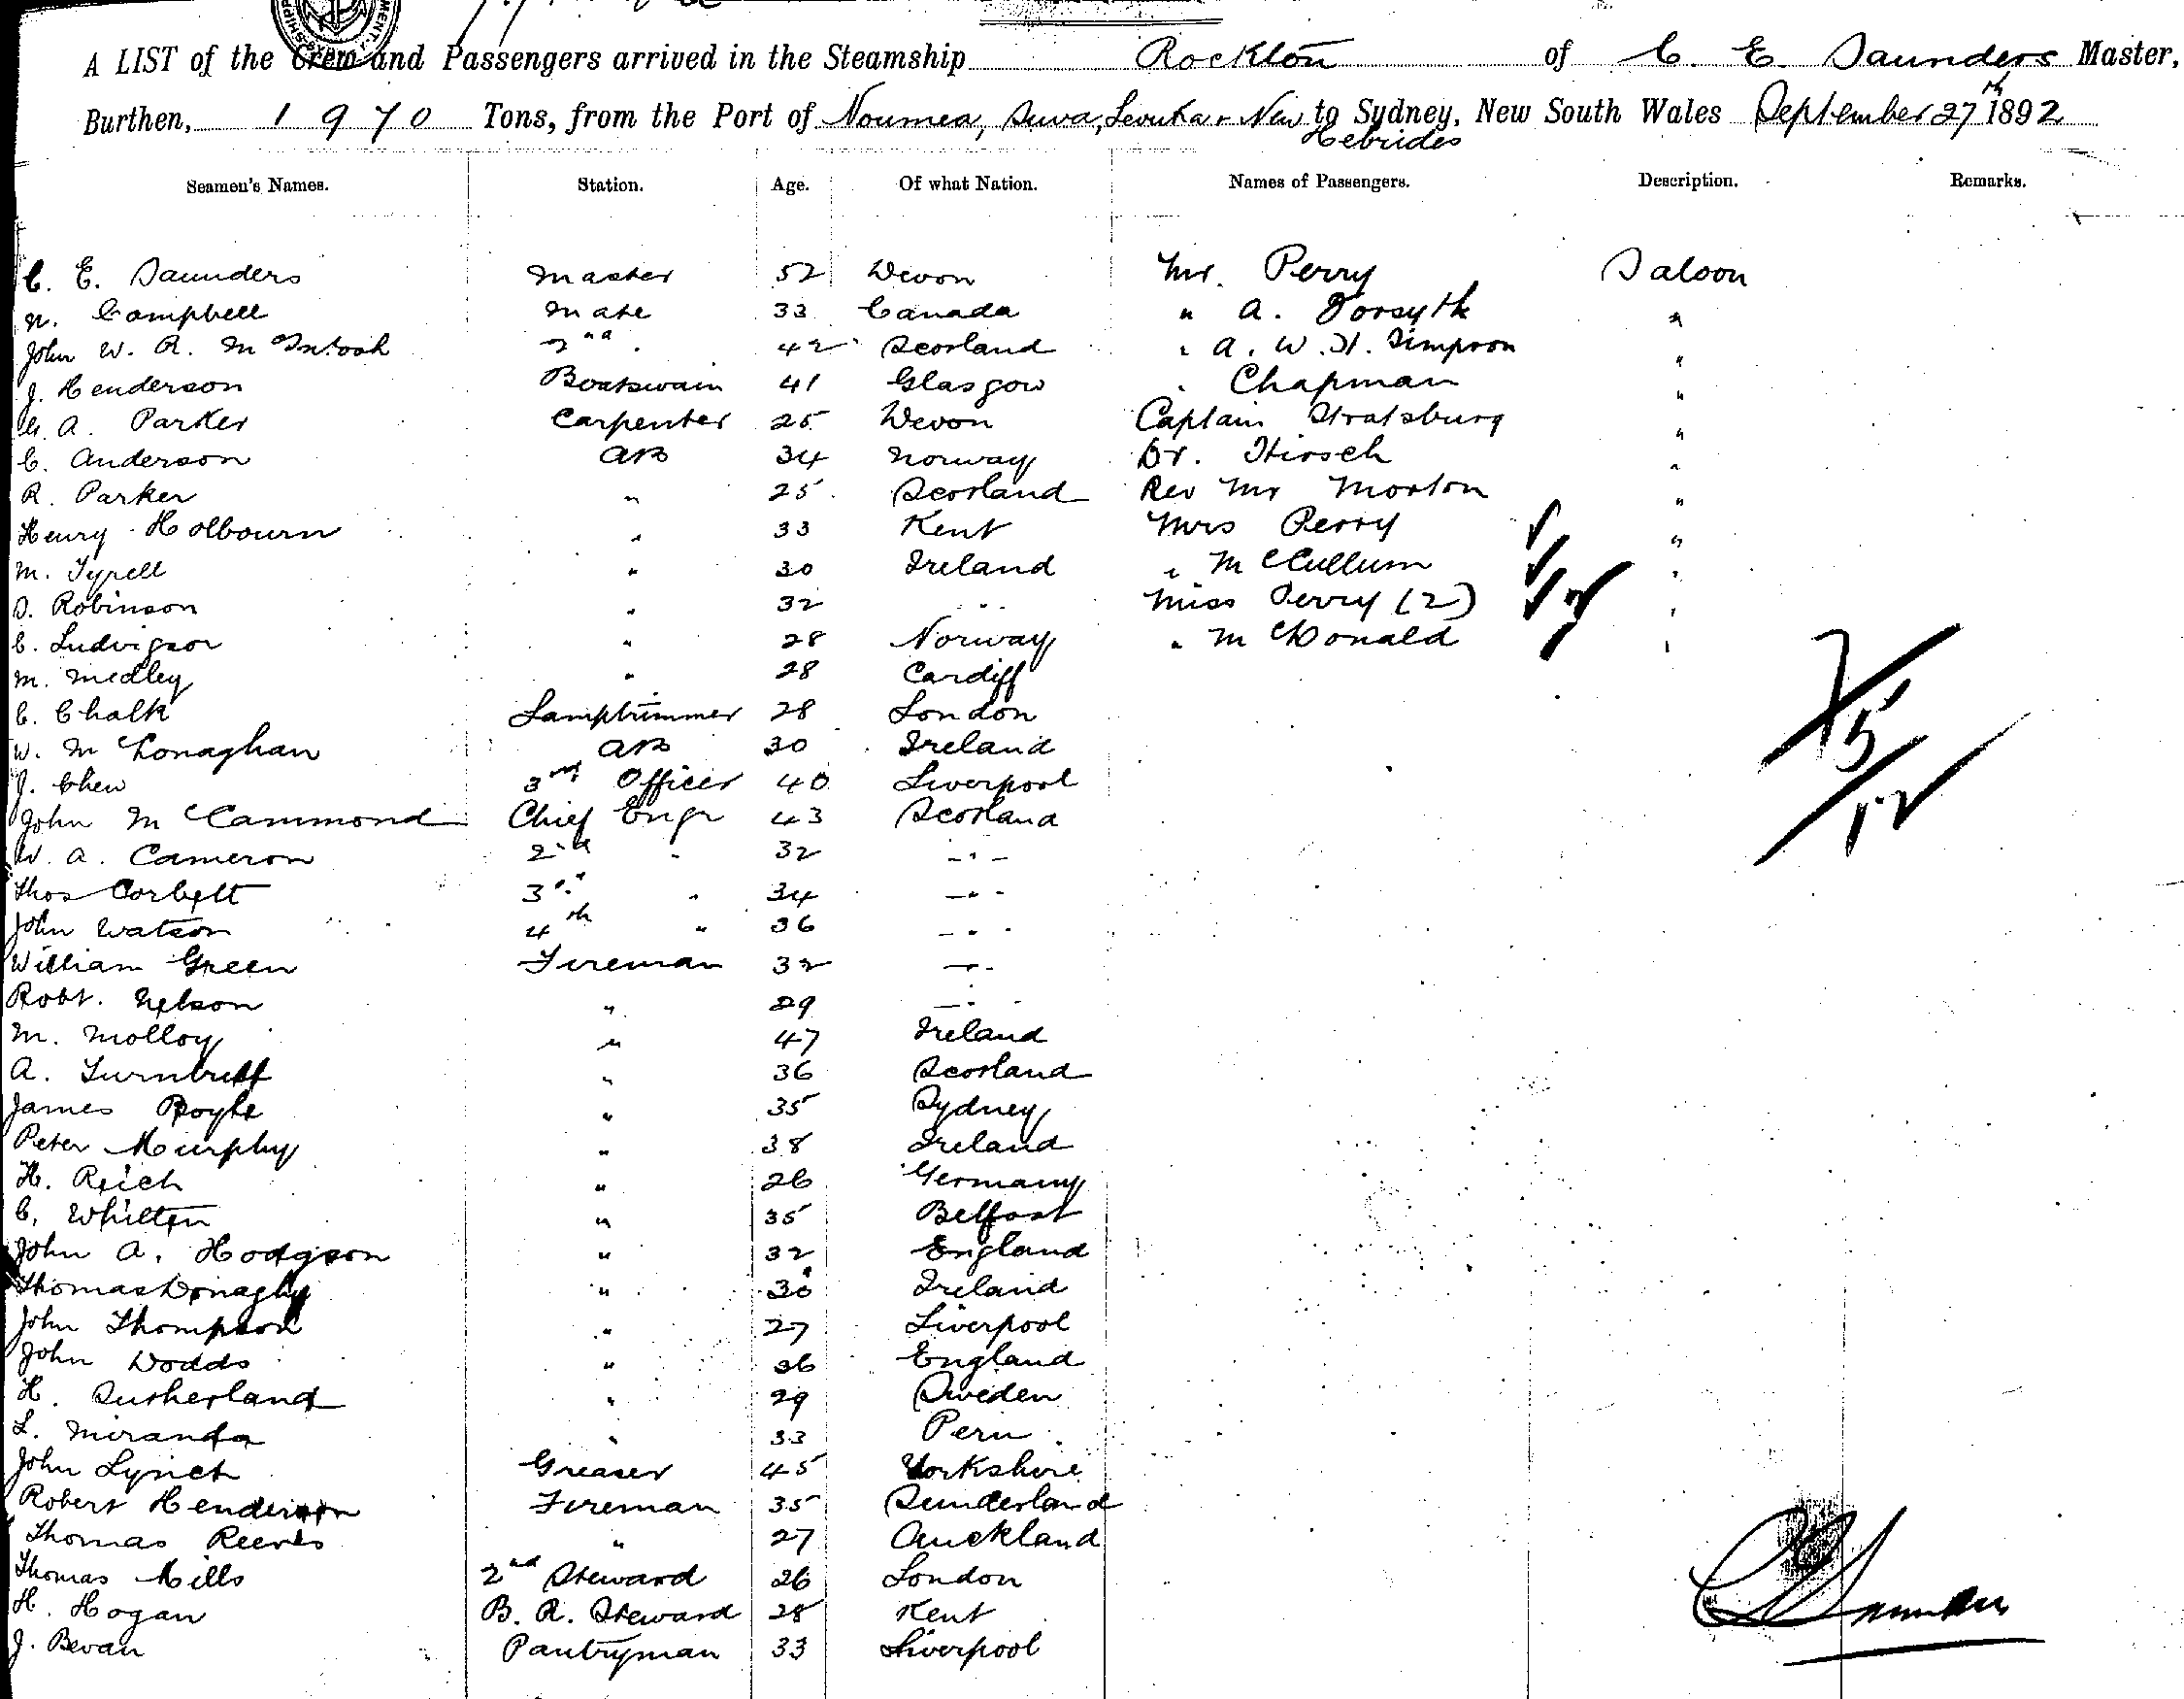 A LIST of the Crew and Passengers arrived in the Steamship Rockton of C. E. Saunders Master,
Burthen, 1970 Tons, from the Port of Noumea, Suva, Levuka & New Hebrides to Sydney, New South Wales September 27th 1892
Seamen's Names. Station. Age. Of what Nation. Names of Passengers. Description. Remarks.
C. E. Saunders Master 52 Devon Mr. Perry Saloon
N. Campbell Mate 33 Canada " A. Forsyth "
John W. R. McIntosh 2nd " 42 Scotland " A. W. H. Simpson "
J. Henderson Boatswain 41 Glasgow " Chapman "
G. A. Parker Carpenter 25 Devon Captain Stratsburg "
C. Anderson AB 34 Norway Dr. Hirsch "
R. Parker " 25 Scotland Rev Mr Morton "
Henry Holbourn " 33 Kent Mrs Perry "
M. Tyrell " 30 Ireland " McCullum "
D. Robinson " 32 " Miss Perry (2) "
C. Ludvigson " 28 Norway " McDonald "
M. Medley " 28 Cardiff
C. Chalk Lamptrimmer 28 London
W. McLonaghan AB 30 Ireland
J. Chew 3rd Officer 40 Liverpool
John McCammond Chief Engr 43 Scotland
W. A. Cameron 2nd " 32 - " -
Thos Corbett 3rd " 34 - " -
John Watson 4th " 36 - " -
William Green Fireman 32 - " -
Robt. Nelson " 29 - " -
M. Molloy " 47 Ireland
A. Turnbull " 36 Scotland
James Boyle " 35 Sydney
Peter Murphy " 38 Ireland
H. Reich " 26 Germany
C. Whitten " 35 Belfast
John A. Hodgson " 32 England
Thomas Donaghy " 30 Ireland
John Thompson " 27 Liverpool
John Dodds " 36 England
H. Sutherland " 29 Sweden
L. Miranda " 33 Peru
John Lynch Greaser 45 Yorkshire
Robert Henderson Fireman 35 Sunderland
Thomas Reeves " 27 Auckland
Thomas Mills 2nd Steward 26 London
H. Hogan B. R. Steward 28 Kent
J. Bevan Pantryman 33 Liverpool
7
5
12
C E Saunders